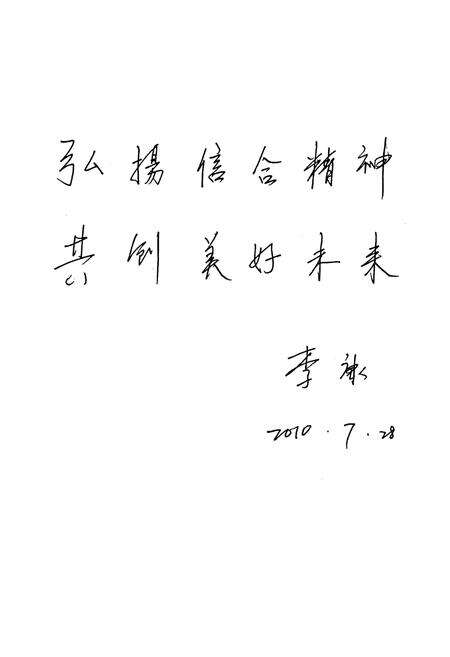 弘揚信合精神
共创美好未来
李
2010.7.28